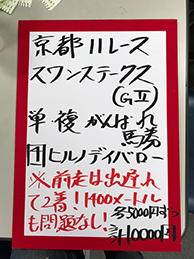 京都11レース
スワンステークス
(GⅡ)
単複がんばれ
馬券
1ヒルノデイバロー
※前走は出遅れ
て2着!1400メートル
も問題なし!
各5000円ずつ
計10000円